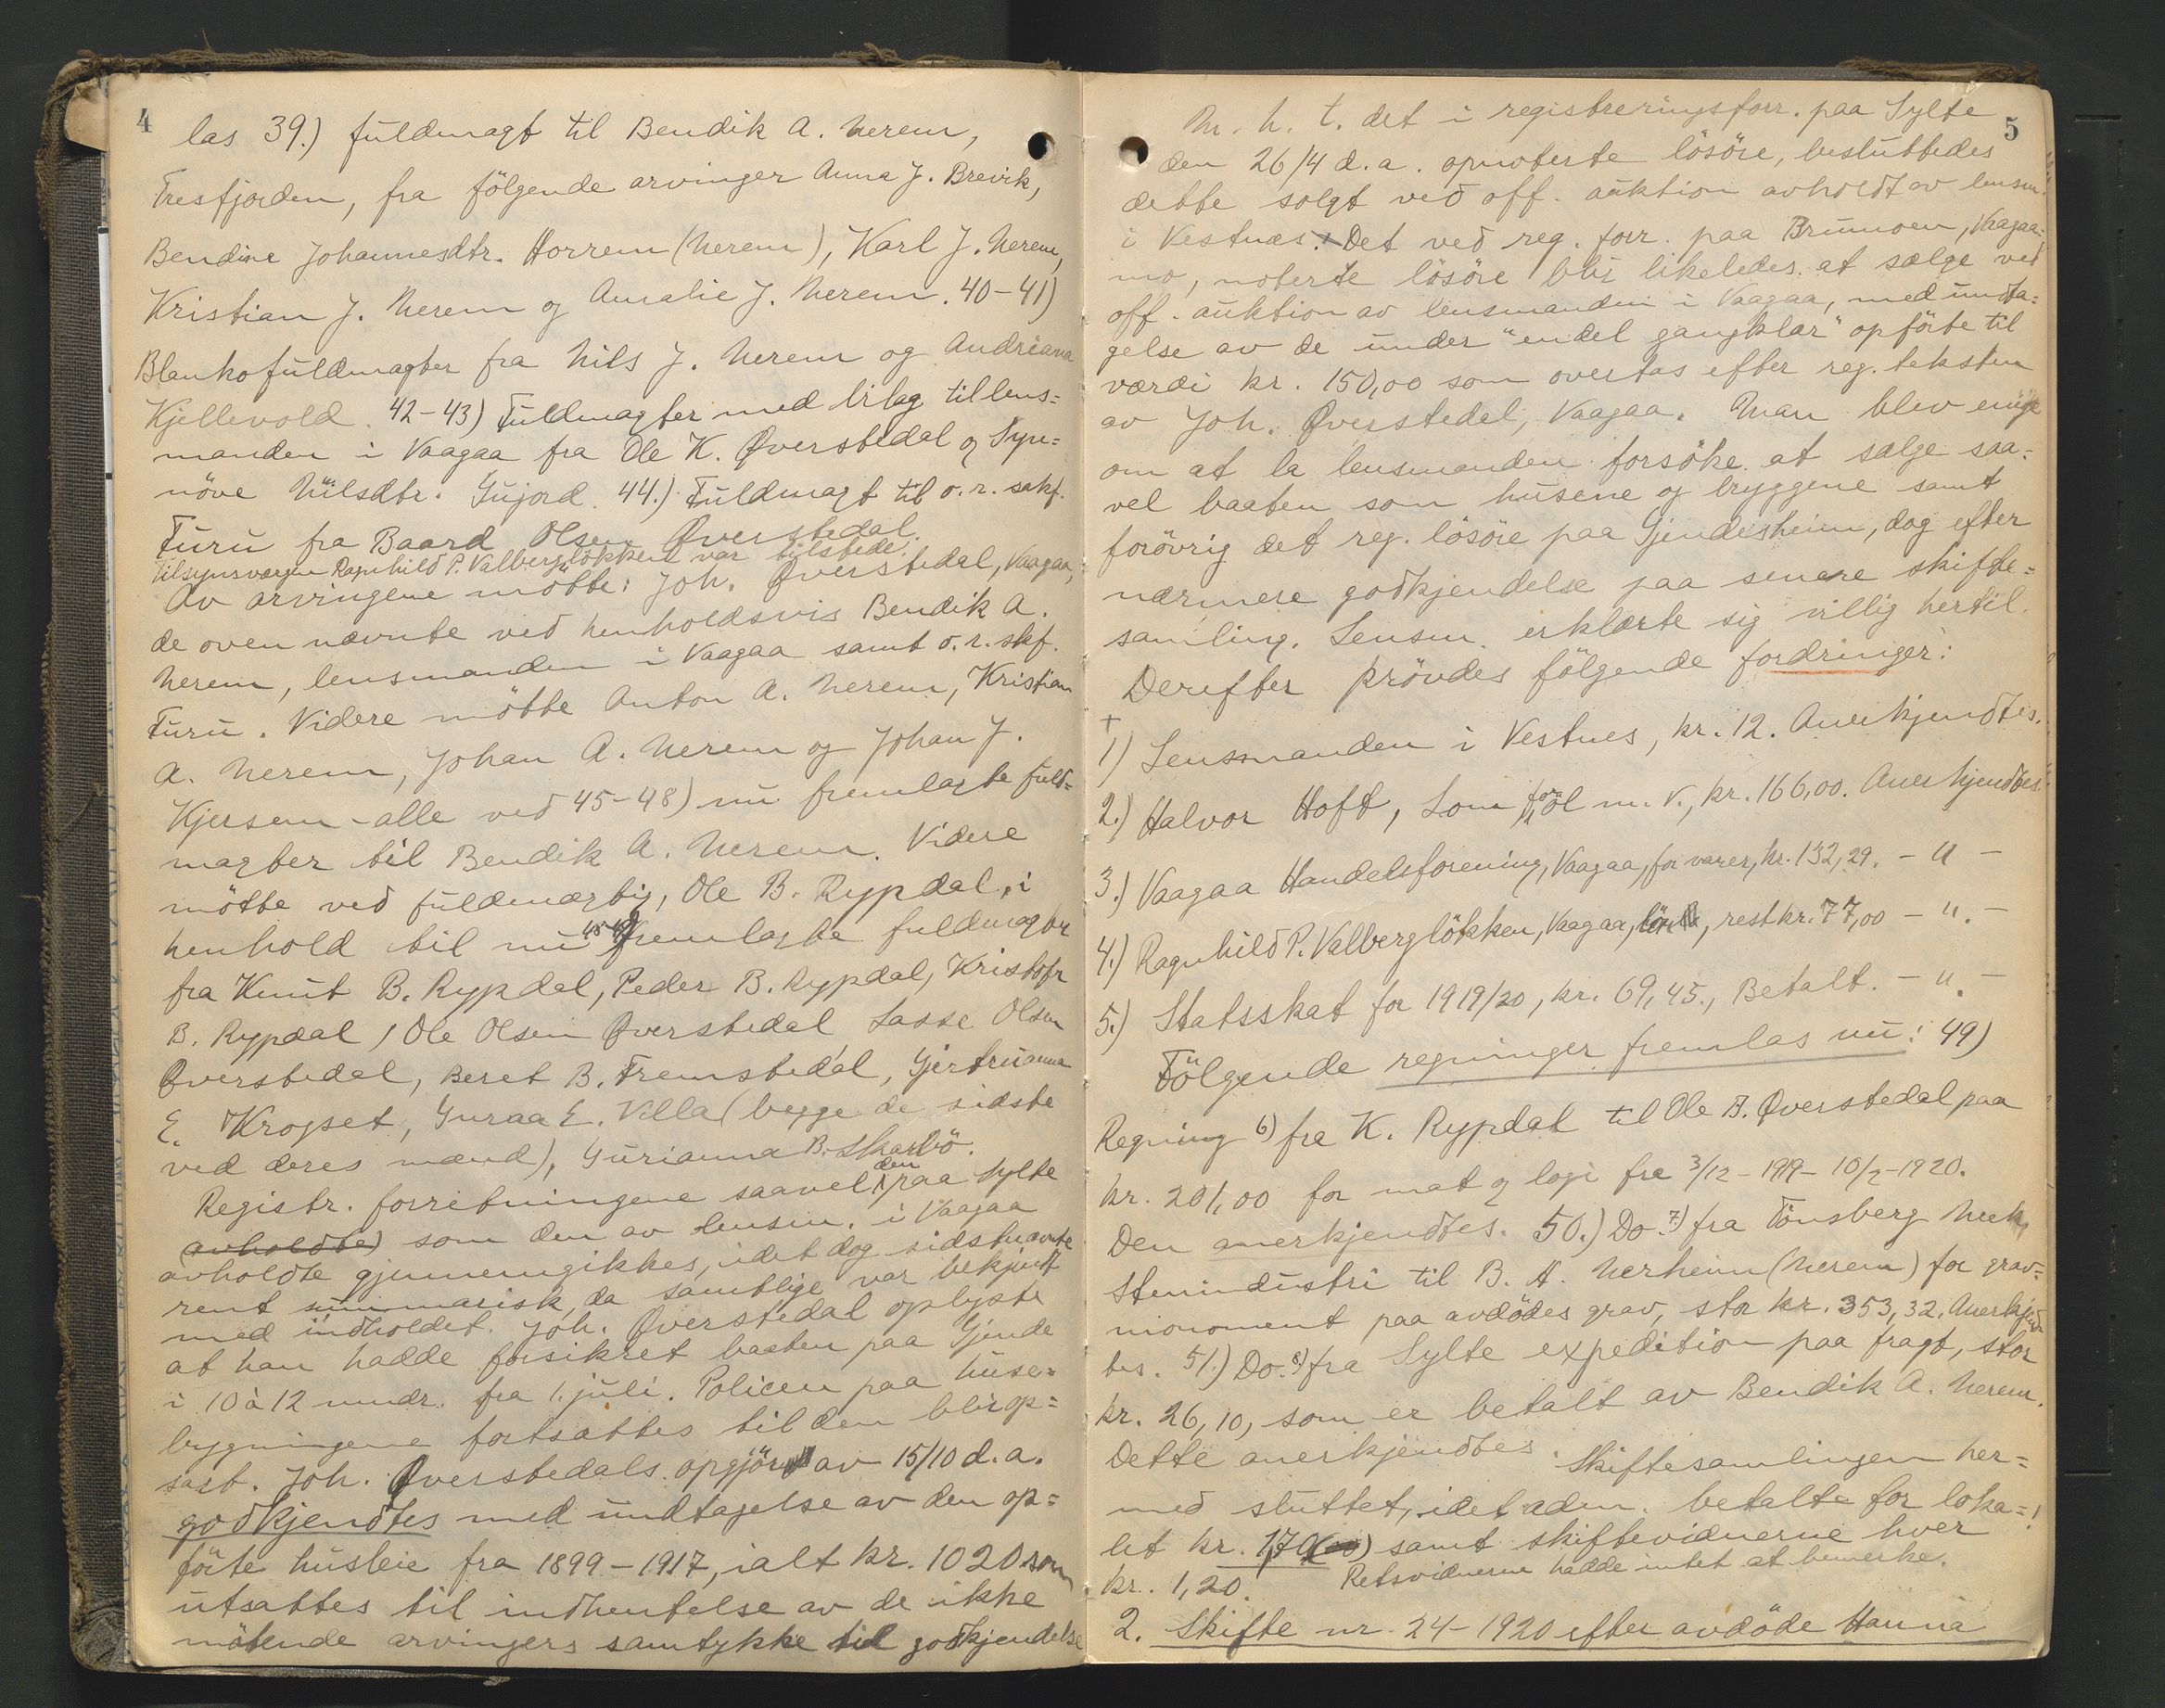 4
las 39.) fuldmagt til Bendik A. Nerem,
Tresfjorden, fra følgende arvinger Anna J. Brevik,
Bendine Johannesdtr. Horrem (Nerem), Karl J. Nerem,
Kristian J. Nerem og Amalie J. Nerem. 40-41)
Blankofuldmagter fra Nils J. Nerem og Andriana
Kjellevold. 42-43) Fuldmagter med bilag til lens=
manden i Vaagaa fra Ole K. Øverstedal og Syn=
növe Nilsdtr. Gujord. 44.) Fuldmagt til o.r. sakf.
Furu fra Baard Olsen Øverstedal.
Tilsynsvergen Ragnhild P. Valberglökken var tilstede.
Av arvingene mötte: Joh. Øverstedal, Vaagaa,
de oven nævnte ved henholdsvis Bendik A.
Nerem, lensmanden i Vaagaa samt o.r. skf.
Furu. Videre mötte Anton A. Nerem, Kristian
A. Nerem, Johan A. Nerem og Johan J.
Kjersem - alle ved 45-48) nu fremlagte fuld=
magter til Bendik A. Nerem. Videre
mötte ved fuldmægtig, Ole B. Rypdal, i
henhold til nu 48 fremlagte fuldmagter
fra Knut B. Rypdal, Peder B. Rypdal, Kristofr
B. Rypdal, Ole Olsen Øverstedal Lasse Olsen
Øverstedal, Beret B. Fremstedal, Gjertruanna
E. Krogset, Guraa E. Villa (begge de sidste
ved deres mænd), Gurianna B. Skarbö.
Registr. forretningene saavel den paa Sylte
(avholdte) som den av lensm. i Vaagaa
avholdte gjennemgikkes, idet dog sidstnævnte
rent summarisk, da samtlige var bekjendt
med indholdet. Joh. Øverstedal oplyste
at han hadde forsikret baaten paa Gjende
i 10 à 12 mndr. fra 1. juli. Policen paa huse=
bygningene fortsattes til den blir op=
sagt. Joh. Øverstedals opgjör av 15/10 d.a.
godkjendtes med undtagelse av den op=
förte husleie fra 1899-1917, ialt kr. 1020 som
utsattes til indhentelse av de ikke
mötende arvingers samtykke til godkjendelse
5
M. h. t. det i registreringsforr. paa Sylte
den 26/4 d.a. opnoterte lösöre, besluttedes
dette solgt ved off. auktion avholdt av lensm.
i Vestnes. Det ved reg. forr. paa Brumoen, Vaagaa=
mo, noterte lösöre blir likeledes at sælge ved
off. auktion av lensmanden i Vaagaa, med undta=
gelse av de under "endel gangklær" opförte til
værdi kr. 150,00 som overtas efter reg. teksten
av Joh. Øverstedal, Vaagaa. Man blev enige
om at la lensmanden forsöke at sælge saa=
vel baaten som husene og bryggene samt
forövrig det reg. lösöre paa Gjendesheim, dog efter
nærmere godkjendelse paa senere skifte=
samling. Lensm. erklærte sig villig hertil.
Derefter prövdes fölgende fordringer:
+
1) Lensmanden i Vestnes, kr. 12. Anerkjendtes.
2.) Halvor Hoft, Lom for öl m.v., kr. 166,00. Anerkjendtes.
3.) Vaagaa Handelsforening, Vaagaa, for varer, kr. 132,29. - " -
4.) Ragnhild P. Valberglökken, Vaagaa, lön, rest kr. 77,00 - ". -
5.) Statsskat for 1919/20, kr. 69,45., Betalt. - ". -
Fölgende regninger fremlas nu: 49)
Regning 6) fra K. Rypdal til Ole B. Øverstedal paa
kr. 201,00 for mat og logi fra 3/12-1919 - 10/2-1920.
Den anerkjendtes. 50.) Do. 7) fra Tönsberg Mek.
Stenindustri til B. A. Nerheim (Nerem) for grav=
monoment paa avdödes grav, stor kr. 353,32. Anerkjend=
tes. 51.) Do. 8) fra Sylte expedition paa fragt, stor
kr. 26,10, som er betalt av Bendik A. Nerem.
Dette anerkjendtes. Skiftesamlingen her=
med sluttet, idet adm. betalte for loka=
let kr. 1,70 samt skiftevidnerne hver
kr. 1,20. Retsvidnerne hadde intet at bemerke.
2. Skifte nr. 24-1920 efter avdöde Hanna